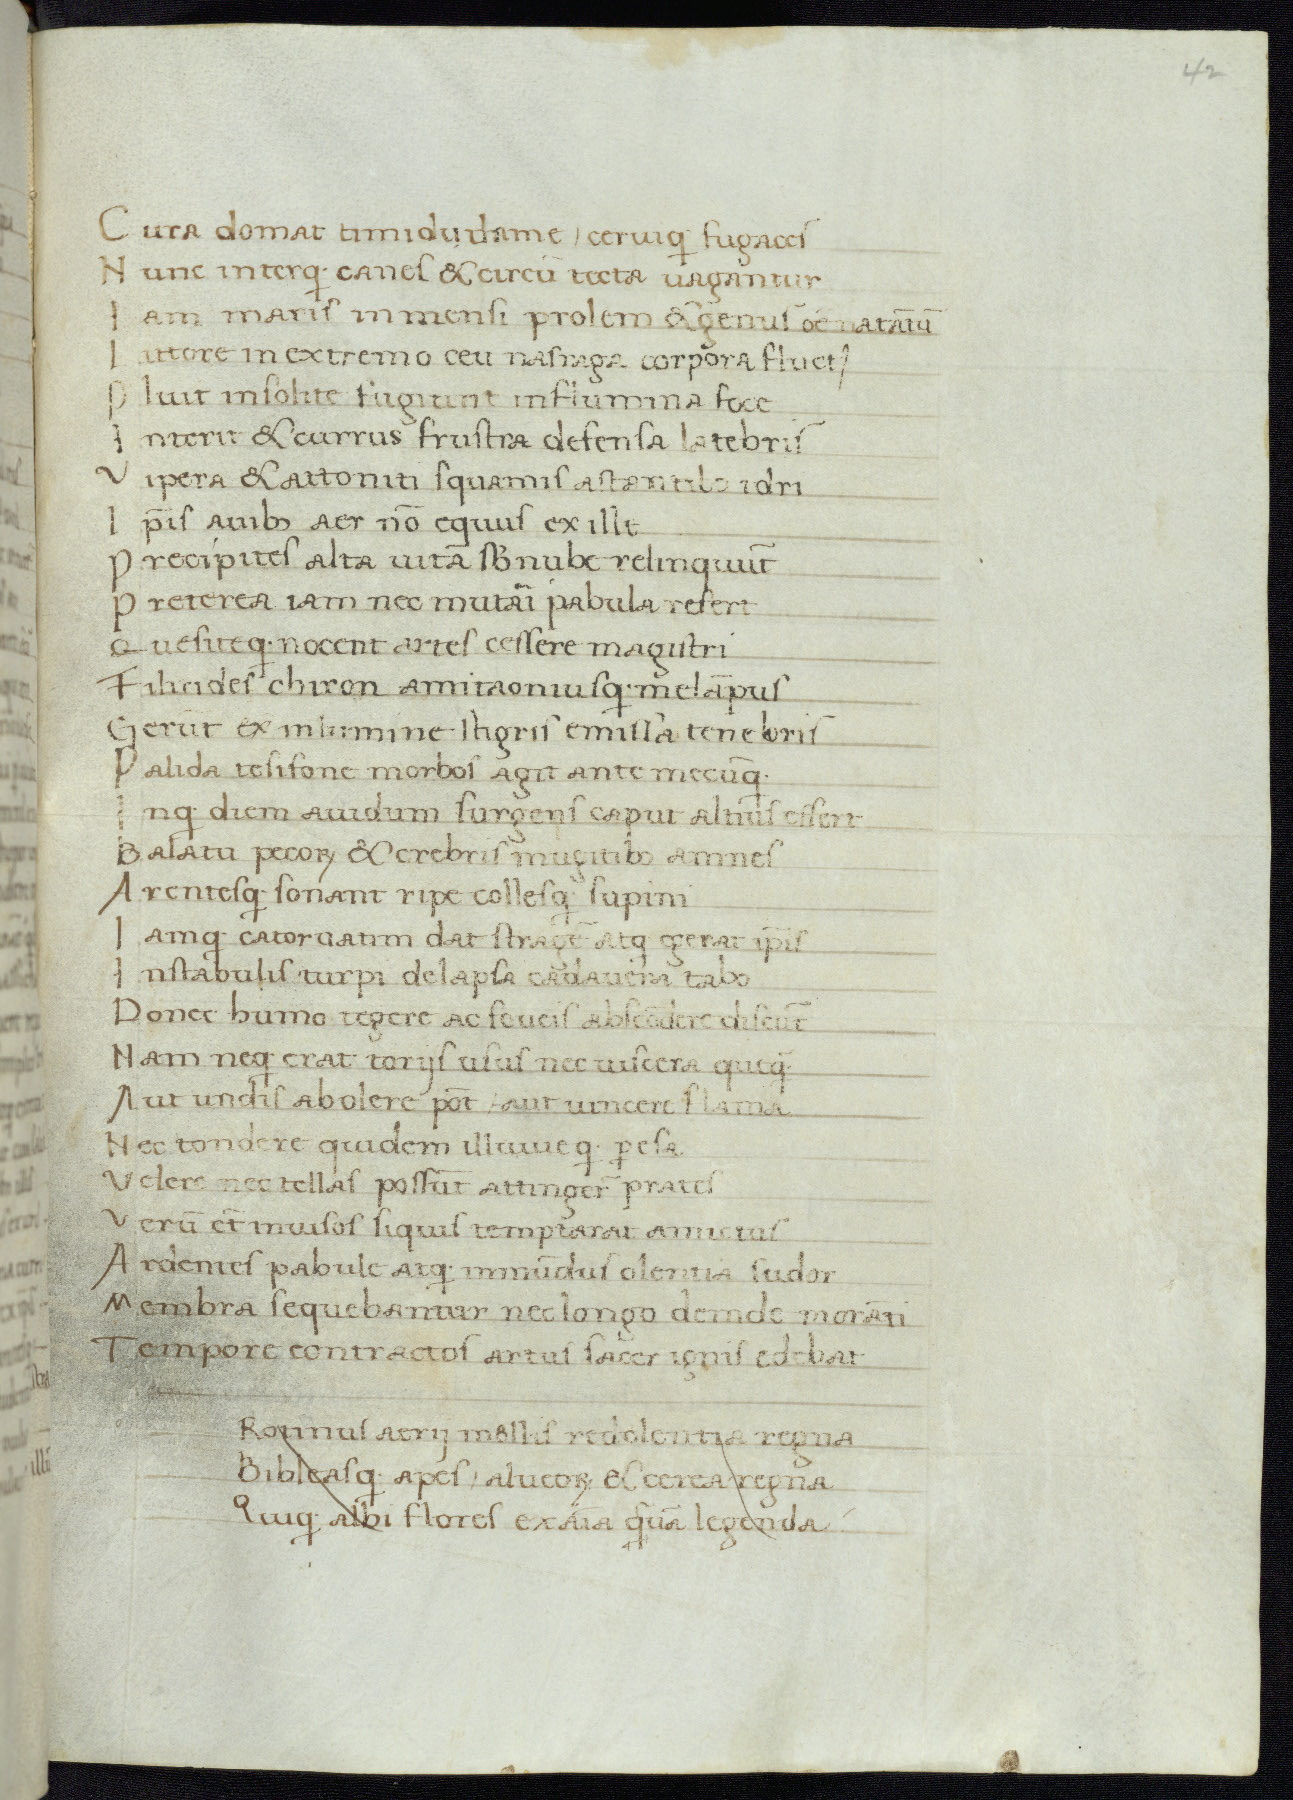 42
Cura domat timidu dame / ceruiq; fugaces
Nunc interq; canes & circū tecta uagantur
Iam maris inmensi prolem & genus oē natātū
Litore in extremo ceu nafraga corpora fluct/
Pluit insolite fugiunt in flumina foce
Interit & currus frustra defensa latebris
Vipera & attoniti squamis astantib; idri
Ip̄is auib; aer nō equus ex illt
Precipites alta uitā sub nube relinquūt
Preterea iam nec mutāi pabula refert
Quesiteq; nocent artes cessere magistri
Filicides chiron amitaoniusq; melāpus
Gerūt ex inlumine stigris emissa tenebris
Palida tesifone morbos agit ante mecūq;
Inq; diem auidum surgens caput altius effert
Balatu pecoꝝ & crebris mugitib; amnes
Arentesq; sonant ripe collesq; supini
Iamq; catoruatim dat stragē atq; egerat ip̄is
Instabulis turpi delapsa cadauera tabo
Donec humo tegere ac foueis abscōdere discūt
Nam neq; erat torijs usus nec uiscera quiq̄;
Aut undis abolere pōt / aut uincere flama
Nec tondere quidem illuuieq; ꝑesa
Velere nec tellas possūt attinger̄ prates
Verū et̄ inuisos siquis temptarat amictus
Ardentes pabule atq; inmūdus olentia sudor
Membra sequebantur nec longo deinde morāti
Tempore contractos artus sacer ignis edebat
Rotinus aerij mellis redolentia regna
Bibleasq; apes / alueoꝝ & cerea regna
Quiq; albi flores exāia quā legenda